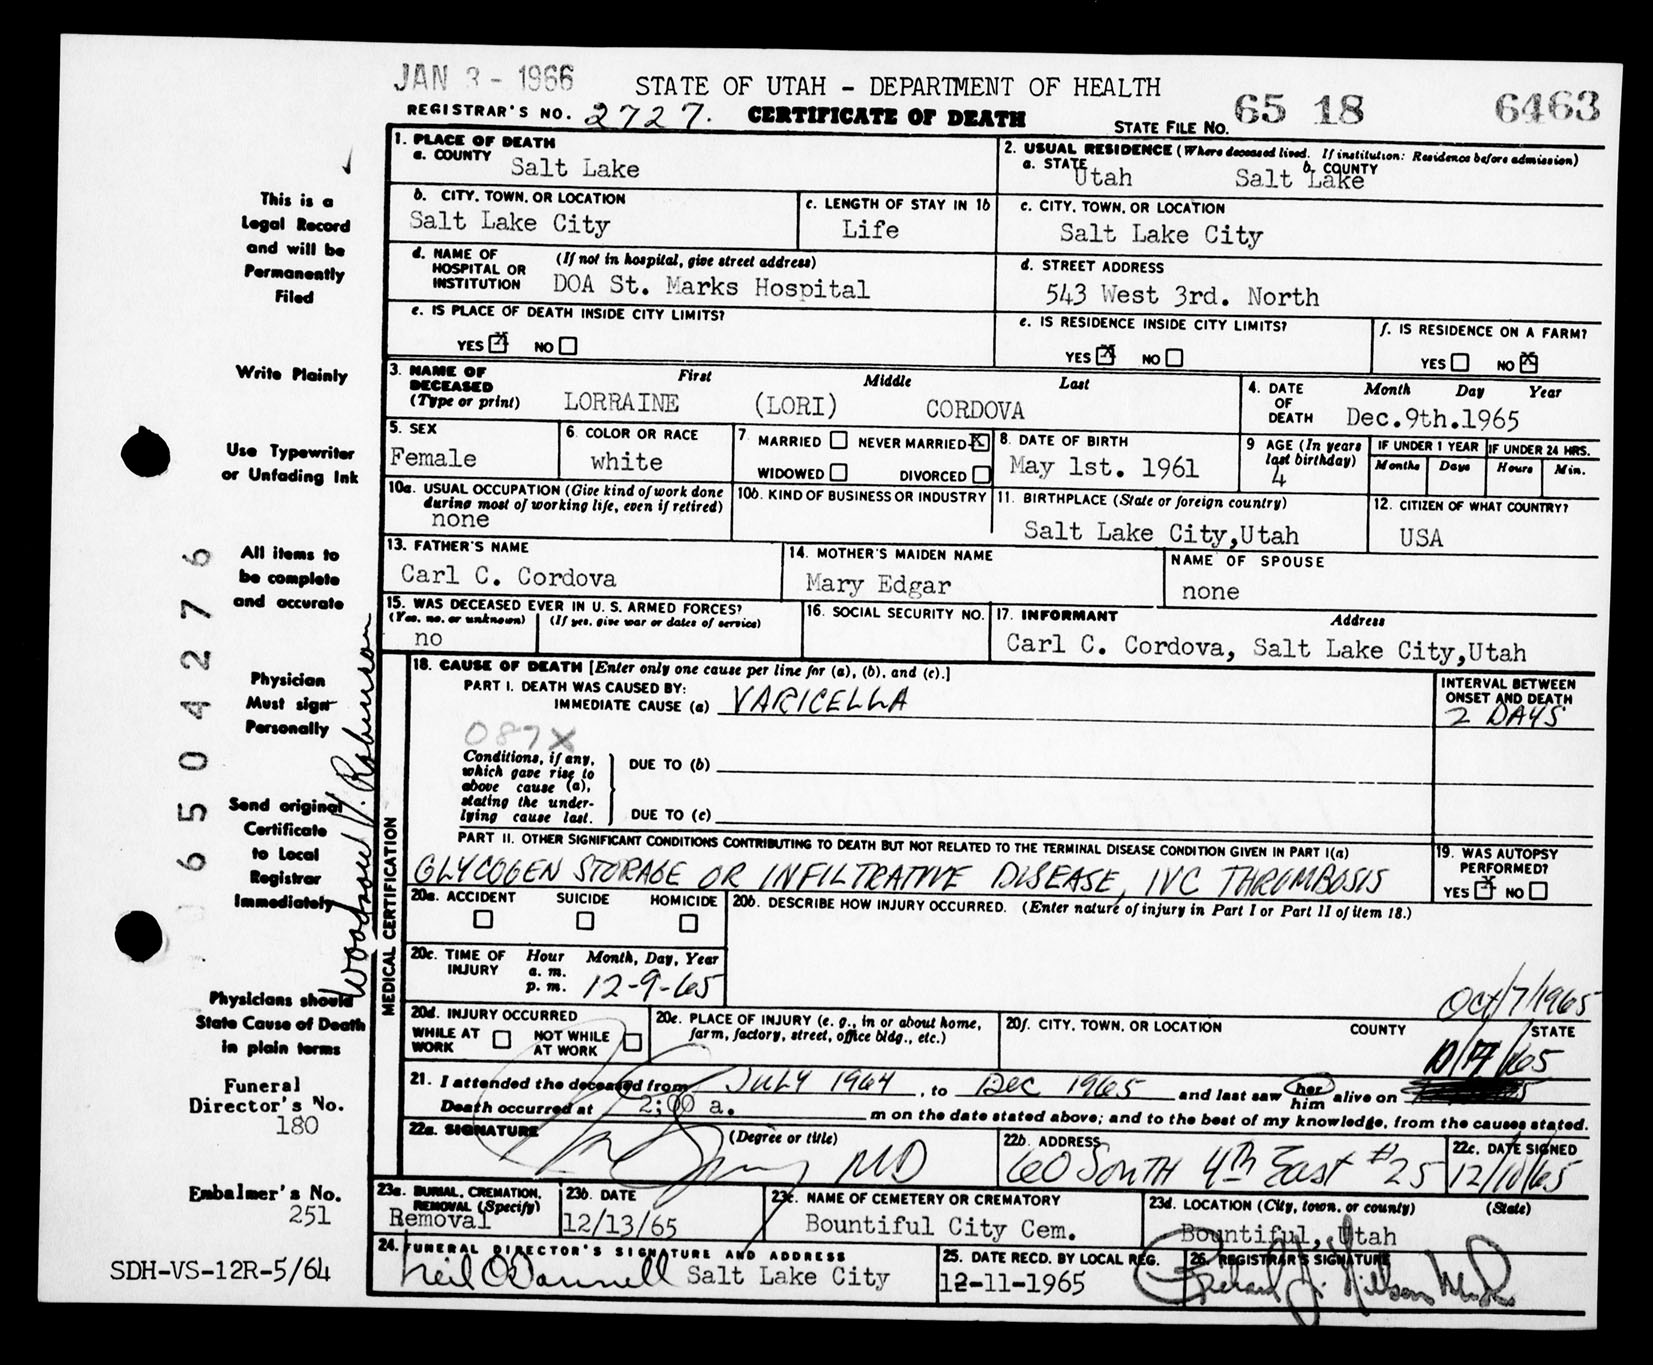 JAN 3 - 1966
STATE OF UTAH - DEPARTMENT OF HEALTH
REGISTRAR'S NO. 2727. CERTIFICATE OF DEATH STATE FILE NO. 65 18 6463
1. PLACE OF DEATH
a. COUNTY Salt Lake
2. USUAL RESIDENCE (Where deceased lived. If institution: Residence before admission)
a. STATE Utah b. COUNTY Salt Lake
b. CITY, TOWN, OR LOCATION
Salt Lake City
c. LENGTH OF STAY IN 1b
Life
c. CITY, TOWN, OR LOCATION
Salt Lake City
d. NAME OF HOSPITAL OR INSTITUTION (If not in hospital, give street address)
DOA St. Marks Hospital
d. STREET ADDRESS
543 West 3rd. North
e. IS PLACE OF DEATH INSIDE CITY LIMITS?
YES X NO
e. IS RESIDENCE INSIDE CITY LIMITS?
YES X NO
f. IS RESIDENCE ON A FARM?
YES NO X
3. NAME OF DECEASED (Type or print) First Middle Last
LORRAINE (LORI) CORDOVA
4. DATE OF DEATH Month Day Year
Dec.9th.1965
5. SEX
Female
6. COLOR OR RACE
white
7. MARRIED NEVER MARRIED X
WIDOWED DIVORCED
8. DATE OF BIRTH
May 1st. 1961
9 AGE (In years last birthday)
4
IF UNDER 1 YEAR
Months Days
IF UNDER 24 HRS.
Hours Min.
10a. USUAL OCCUPATION (Give kind of work done during most of working life, even if retired)
none
10b. KIND OF BUSINESS OR INDUSTRY
11. BIRTHPLACE (State or foreign country)
Salt Lake City,Utah
12. CITIZEN OF WHAT COUNTRY?
USA
13. FATHER'S NAME
Carl C. Cordova
14. MOTHER'S MAIDEN NAME
Mary Edgar
NAME OF SPOUSE
none
15. WAS DECEASED EVER IN U. S. ARMED FORCES?
(Yes, no, or unknown) (If yes, give war or dates of service)
no
16. SOCIAL SECURITY NO.
17. INFORMANT Address
Carl C. Cordova, Salt Lake City,Utah
MEDICAL CERTIFICATION
18. CAUSE OF DEATH [Enter only one cause per line for (a), (b), and (c).]
PART I. DEATH WAS CAUSED BY:
IMMEDIATE CAUSE (a) VARICELLA
INTERVAL BETWEEN ONSET AND DEATH
2 DAYS
087X
Conditions, if any, which gave rise to above cause (a), stating the underlying cause last.
DUE TO (b)
DUE TO (c)
PART II. OTHER SIGNIFICANT CONDITIONS CONTRIBUTING TO DEATH BUT NOT RELATED TO THE TERMINAL DISEASE CONDITION GIVEN IN PART I(a)
GLYCOGEN STORAGE OR INFILTRATIVE DISEASE, IVC THROMBOSIS
19. WAS AUTOPSY PERFORMED?
YES X NO
20a. ACCIDENT SUICIDE HOMICIDE
20b. DESCRIBE HOW INJURY OCCURRED. (Enter nature of injury in Part I or Part II of item 18.)
20c. TIME OF INJURY Hour Month, Day, Year
a. m.
p. m. 12-9-65
20d. INJURY OCCURRED
WHILE AT WORK NOT WHILE AT WORK
20e. PLACE OF INJURY (e. g., in or about home, farm, factory, street, office bldg., etc.)
20f. CITY, TOWN, OR LOCATION COUNTY STATE
Oct/7/1965
21. I attended the deceased from JULY 1964, to DEC 1965 and last saw her him alive on
Death occurred at 2:00 a. m on the date stated above; and to the best of my knowledge, from the causes stated.
22a. SIGNATURE (Degree or title)
MD
22b. ADDRESS
60 SOUTH 4TH EAST #25
22c. DATE SIGNED
12/10/65
23a. BURIAL, CREMATION, REMOVAL (Specify)
Removal
23b. DATE
12/13/65
23c. NAME OF CEMETERY OR CREMATORY
Bountiful City Cem.
23d. LOCATION (City, town, or county) (State)
Bountiful, Utah
24. FUNERAL DIRECTOR'S SIGNATURE AND ADDRESS
Neil O'Donnell Salt Lake City
25. DATE RECD. BY LOCAL REG.
12-11-1965
26. REGISTRAR'S SIGNATURE
This is a
Legal Record
and will be
Permanently
Filed
Write Plainly
Use Typewriter
or Unfading Ink
All items to
be complete
and accurate
Physician
Must sign
Personally
Send original
Certificate
to Local
Registrar
Immediately
Physicians should
State Cause of Death
in plain terms
Funeral
Director's No.
180
Embalmer's No.
251
SDH-VS-12R-5/64
6504276